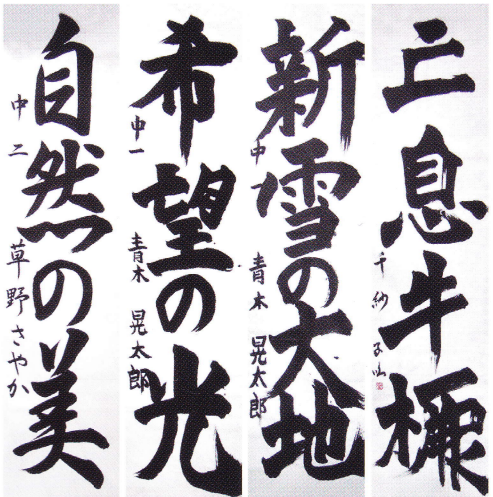 二息牛欄
新雪の大地
中一 青木 晃太郎
希望の光
中一 青木 晃太郎
自然の美
中二 草野さやか